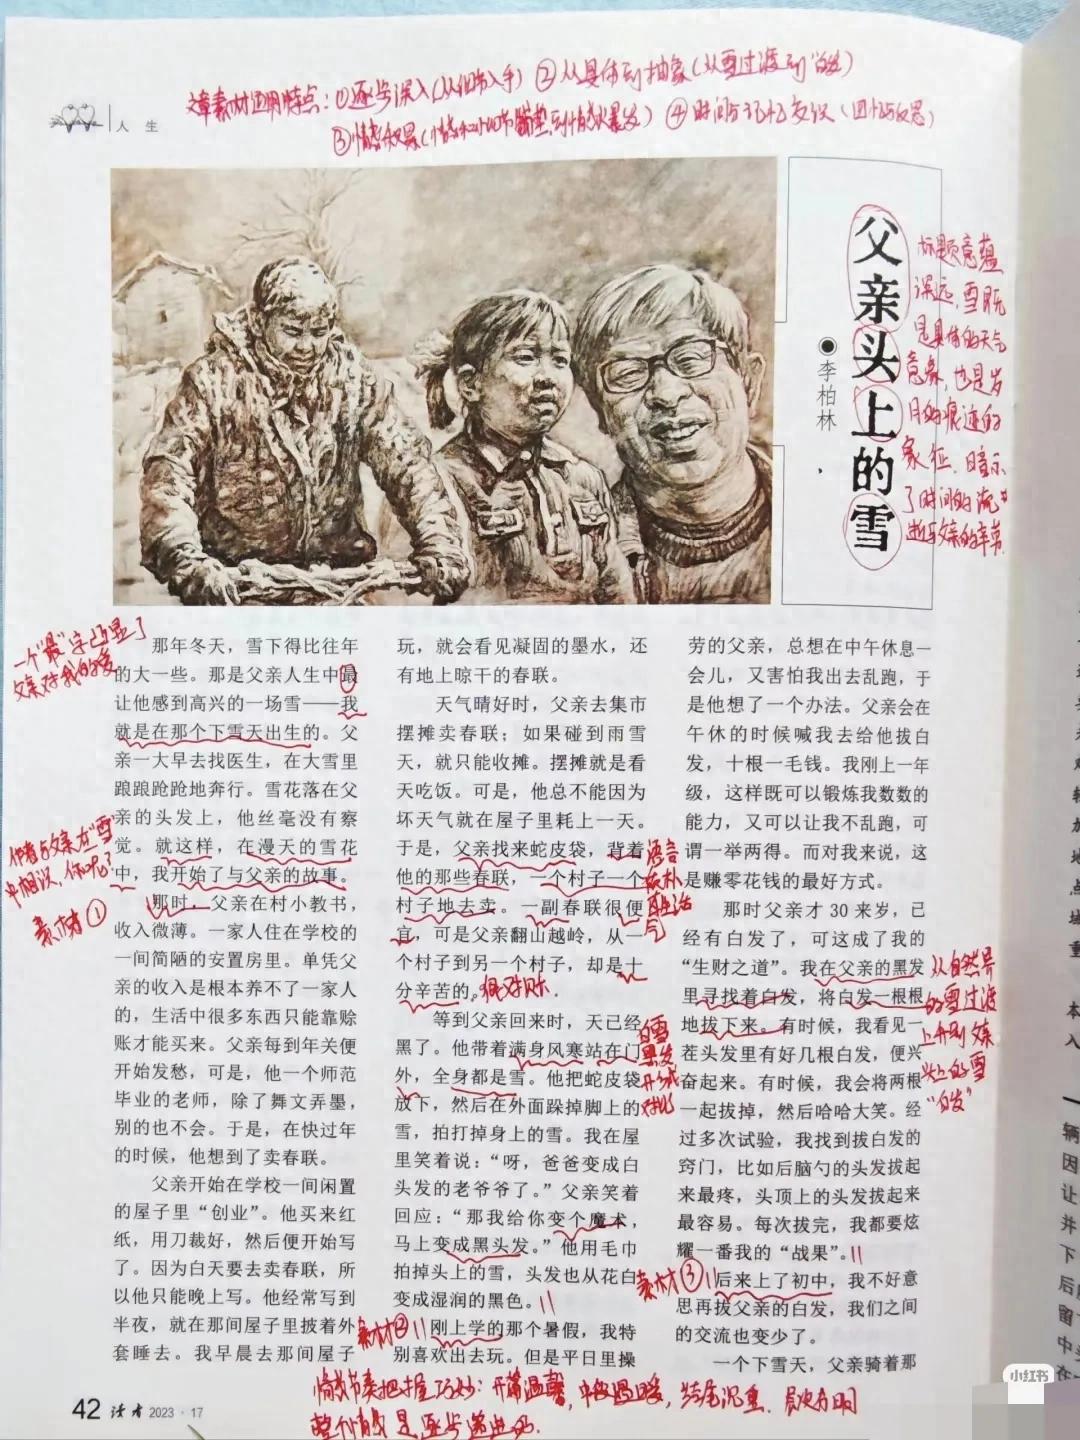 文章素材运用特点：①逐步深入(从细节入手) ②从具体到抽象(从雪过渡到"白发")
③情感积累(情感细节铺垫到情感爆发) ④时间与记忆交织(回忆与反思)
人 生
父亲头上的雪
●李柏林
标题意蕴
深远，雪既
是具体的天气
意象，也是岁
月的痕迹的
象征，暗示
了时间的流
逝与父亲的辛劳
一个"最"字凸显了
父亲对我的爱
作者与父亲在"雪"
中相识，
素材①
那年冬天，雪下得比往年
的大一些。那是父亲人生中最
让他感到高兴的一场雪——我
就是在那个下雪天出生的。父
亲一大早去找医生，在大雪里
踉踉跄跄地奔行。雪花落在父
亲的头发上，他丝毫没有察
觉。就这样，在漫天的雪花
中，我开始了与父亲的故事。
那时，父亲在村小教书，
收入微薄。一家人住在学校的
一间简陋的安置房里。单凭父
亲的收入是根本养不了一家人
的，生活中很多东西只能靠赊
账才能买来。父亲每到年关便
开始发愁，可是，他一个师范
毕业的老师，除了舞文弄墨，
别的也不会。于是，在快过年
的时候，他想到了卖春联。
父亲开始在学校一间闲置
的屋子里“创业”。他买来红
纸，用刀裁好，然后便开始写
了。因为白天要去卖春联，所
以他只能晚上写。他经常写到
半夜，就在那间屋子里披着外
套睡去。我早晨去那间屋子
玩，就会看见凝固的墨水，还
有地上晾干的春联。
天气晴好时，父亲去集市
摆摊卖春联；如果碰到雨雪
天，就只能收摊。摆摊就是看
天吃饭。可是，他总不能因为
坏天气就在屋子里耗上一天。
于是，父亲找来蛇皮袋，背着
他的那些春联，一个村子一个
村子地去卖。一副春联很便
宜，可是父亲翻山越岭，从一
个村子到另一个村子，却是十
分辛苦的。
语言
质朴
有生活
气
等到父亲回来时，天已经
黑了。他带着满身风寒站在门
外，全身都是雪。他把蛇皮袋
放下，然后在外面跺掉脚上的
雪，拍打掉身上的雪。我在屋
里笑着说：“呀，爸爸变成白
头发的老爷爷了。”父亲笑着
回应：“那我给你变个魔术，
马上变成黑头发。”他用毛巾
拍掉头上的雪，头发也从花白
变成湿润的黑色。
白雪
黑发
形成
对比
素材②
刚上学的那个暑假，我特
别喜欢出去玩。但是平日里操
劳的父亲，总想在中午休息一
会儿，又害怕我出去乱跑，于
是他想了一个办法。父亲会在
午休的时候喊我去给他拔白
发，十根一毛钱。我刚上一年
级，这样既可以锻炼我数数的
能力，又可以让我不乱跑，可
谓一举两得。而对我来说，这
是赚零花钱的最好方式。
那时父亲才 30 来岁，已
经有白发了，可这成了我的
“生财之道”。我在父亲的黑发
里寻找着白发，将白发一根根
地拔下来。有时候，我看见一
茬头发里有好几根白发，便兴
奋起来。有时候，我会将两根
一起拔掉，然后哈哈大笑。经
过多次试验，我找到拔白发的
窍门，比如后脑勺的头发拔起
来最疼，头顶上的头发拔起来
最容易。每次拔完，我都要炫
耀一番我的“战果”。
从自然界
的雪过渡
上升到父亲
头上的雪
"白发"
素材③
后来上了初中，我不好意
思再拔父亲的白发，我们之间
的交流也变少了。
一个下雪天，父亲骑着那
情感节奏把握巧妙：开篇温馨，中段温暖，结尾沉重，层次分明
整个情感是逐步递进的.
42 读者 2023·17
小红书